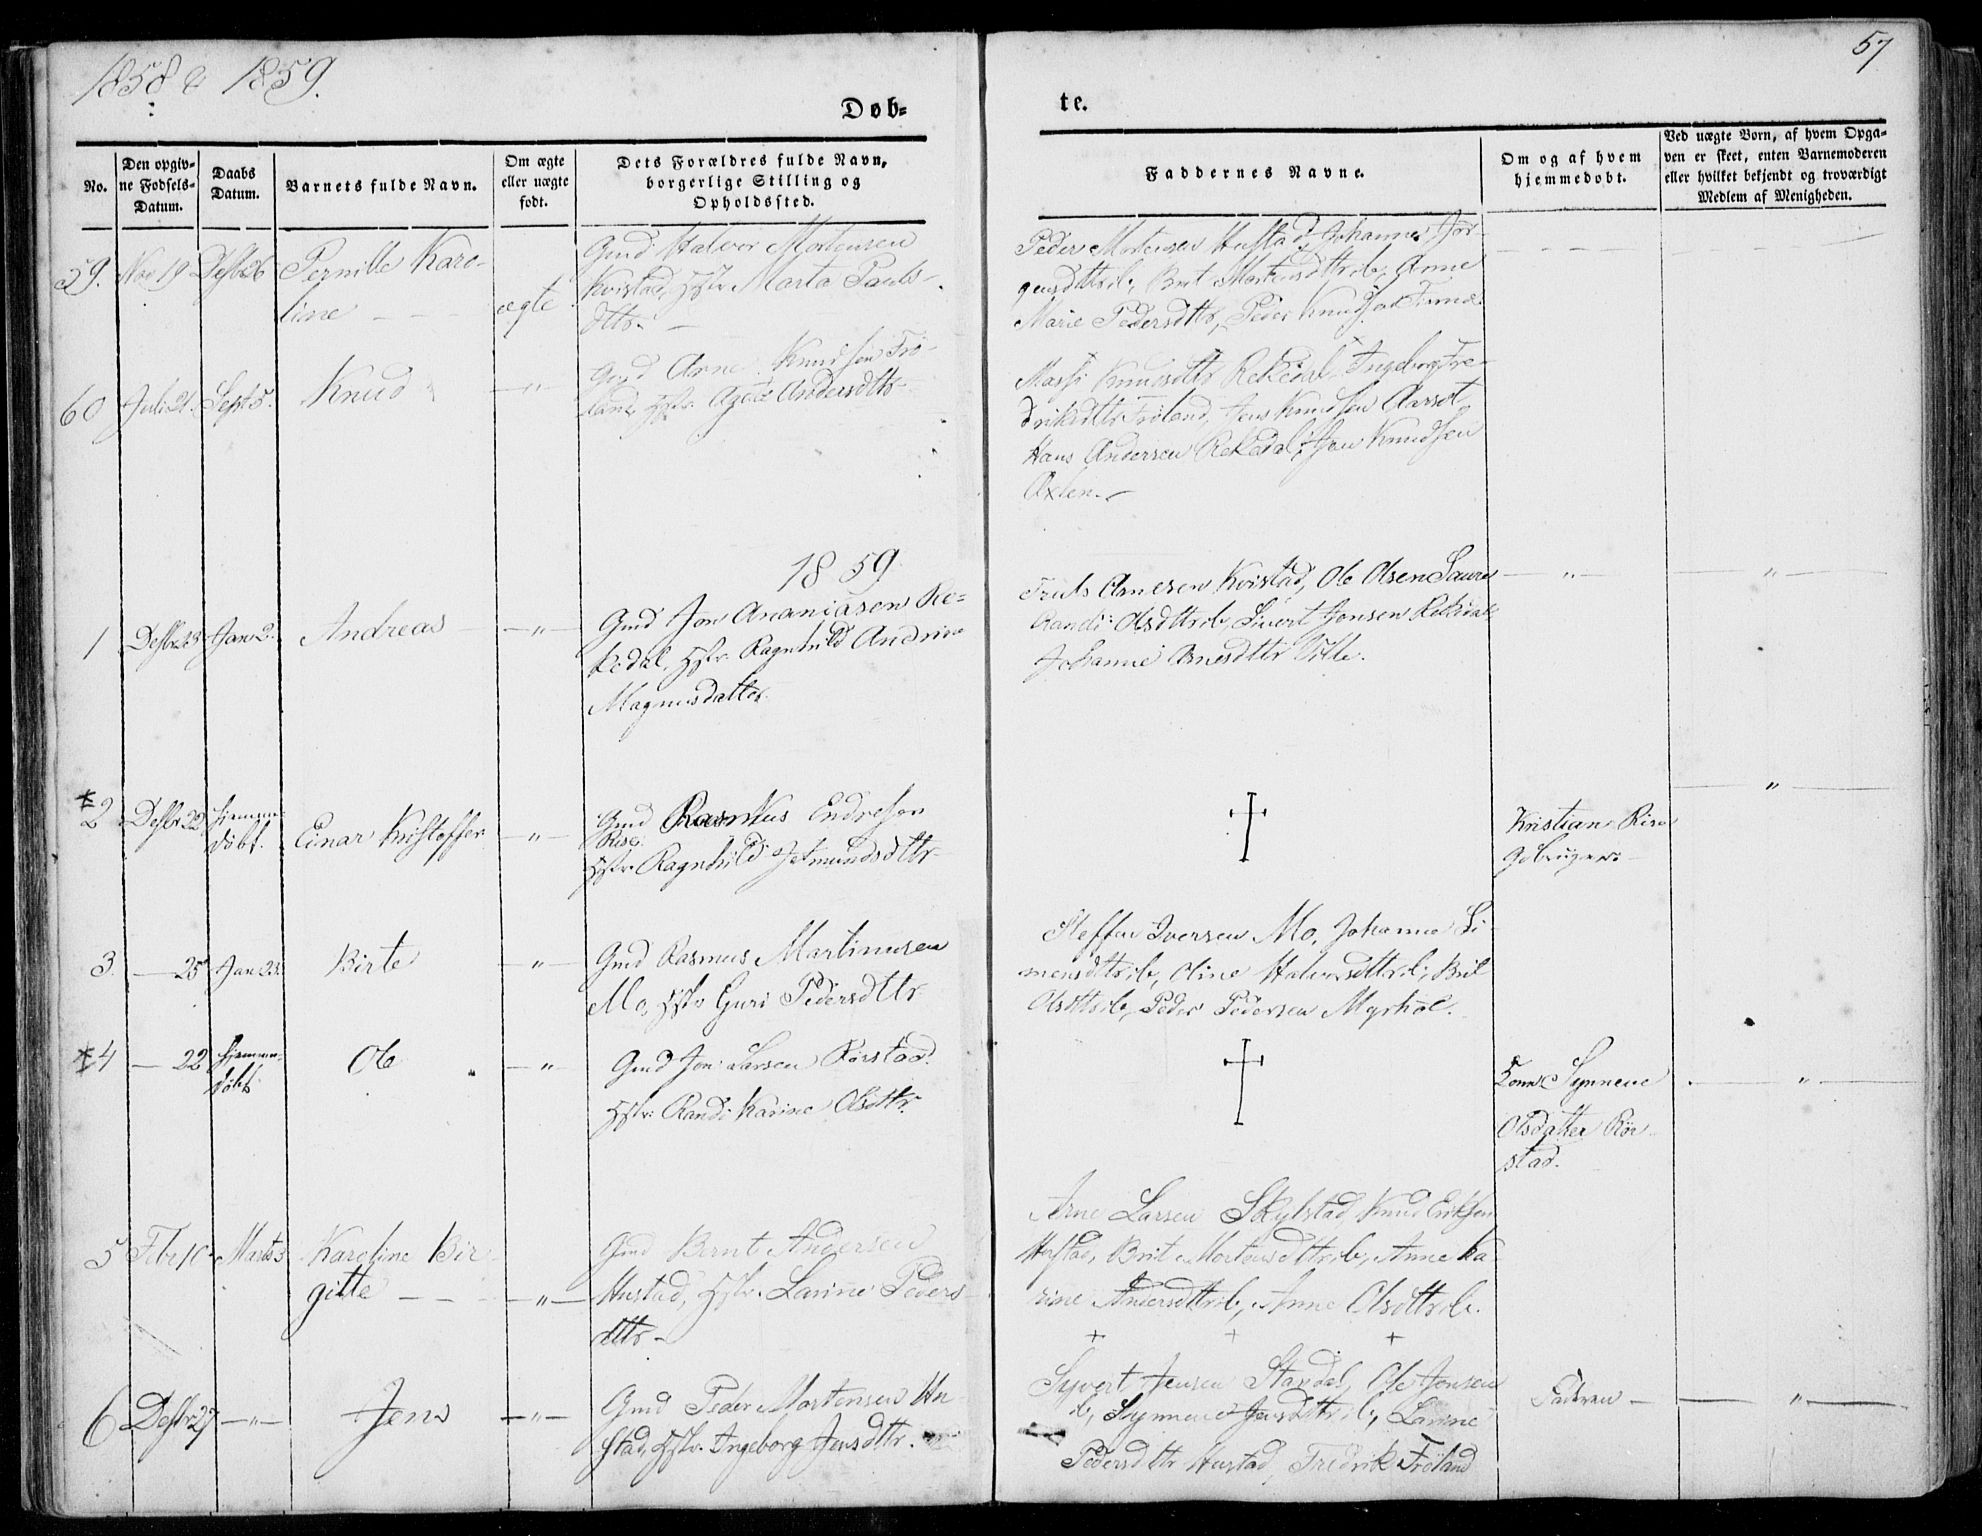 1858 & 1859.
57
Døb-
te.
No.
Den opgiv-
ne Fødsels-
Datum.
Daabs
Datum.
Barnets fulde Navn.
Om ægte
eller uægte
født.
Dets Forældres fulde Navn,
borgerlige Stilling og
Opholdssted.
Faddernes Navne.
Om og af hvem
hjemmedøbt.
Ved uægte Børn, af hvem Opga-
ven er skeet, enten Barnemoderen
eller hvilket bekjendt og troværdigt
Medlem af Menigheden.
59. Nov 19 Desbr 26
Pernille Karo-
line
ægte
Gmd Halvor Mortensen
Kvistad, Hstr Marta Pauls-
dtr.
Peder Mortensen Hustad, Johanne Jør-
gensdttr ib, Brit Mortensdttr ib, Anne
Marie Pedersdttr, Peder Knudsen
60 Juli 21. Sept 5.
Knud
—"—
Gmd Arne Knudsen Frø-
land Hstr. Andersdttr
Massi Knudsdttr Rekkedal Ingeborg Fre-
driksdttr Frøland, Jens Knudsen Aarset
Hans Andersen Rekedal, Jon Knudsen
Øxlen.
1859.
1 Desbr 23 Jan 2.
Andreas
—"—
Gmd Jon Ananiasen Re-
kedal, Hstr. Ragnhild Andrine
Magnusdatter.
Truls Arnesen Kvistad, Ole Olsen Saure
Randi Olsdttr ib, Sivert Jonsen Rekedal
Johanne Arnesdttr
—"—
—"—
*2 Desbr 22 hjemme-
døbt.
Einar Kristoffer
—"—
Gmd Rasmus Endresen
Riise.
Hstr. Ragnhild Jetmundsdttr
†
Kristian Riise
Gbruger
—"—
3. — 25 Jan 23.
Birte
—"—
Gmd Rasmus Martinusen
Mo, Hstr Guri Pedersdttr
Steffen Iversen Mo, Johanne Si-
mensdttr ib, Oline Halvorsdttr ib, Brit
Olsdttr ib, Peder Pedersen Myrhol.
*4 — 22 hjemme-
døbt.
Ole
—"—
Gmd Jon Larsen Rørstad.
Hstr. Randi Karine Olsdttr.
†
Kone Synneve
Olsdatter Rør-
stad.
—"—
5 Febr 10. Marts 3
Karoline Bir-
gitte
—"—
Gmd Bernt Andersen
Hustad, Hstr. Larine Peders-
dttr
Arne Larsen Skylstad, Knud Eriksen
Hustad, Brit Mortensdttr ib, Anne Ka-
rine Andersdttr ib, Anne Olsdttr ib.
+ + +
6 Desbr 27 —"—
Jens
—"—
Gmd Peder Mortensen Hu-
stad, Hstr. Ingeborg Jensdttr.
Syvert Jensen Standal, Ole Jensen
ib, Synneve Jensdttr ib, Larine
Pedersdttr Hustad, Fredrik Frøland
Faderen
—"—